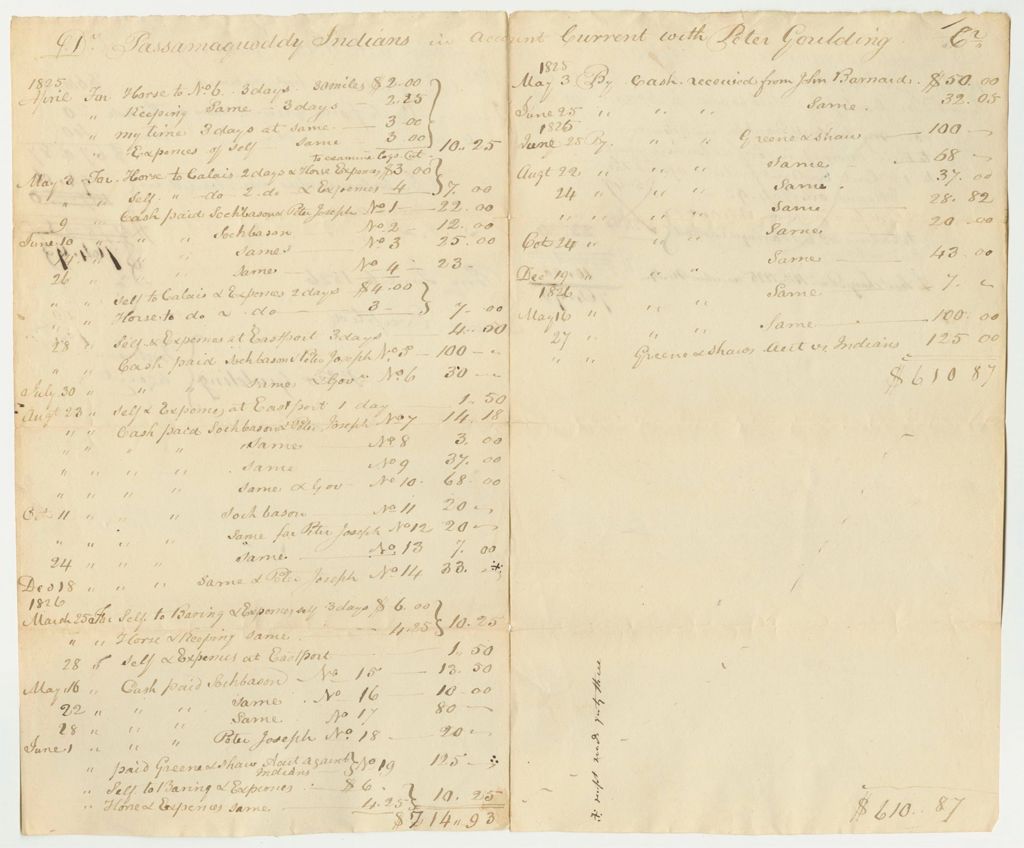 Dr. Passamaquoddy Indians in account Current with Peter Goulding Cr
1825
April For Horse to No 6. 3 days. 30 miles $2.00
" Keeping Same - 3 days - 2.25
" my time 3 days at same - 3 00
" Expenses of self - same - 3 00 10.. 25
to examine logs Cut
May 3 For Horse to Calais 2 days & Horse Expenses $3.00
" Self - do 2. do & Expenses 4 7. 00
" Cash paid Sockbason & Peter Joseph No 1 - 22. 00
9 " " Sockbason No 2 - 12. 00
June 10 " " Same No 3 25. 00
26 " " Same - No 4 - 23 -
" " Self to Calais & Expenses 2 days $4.00
" " Horse to do & do - 3 - 7. 00
28 " Self & Expenses at Eastport 3 days 4. 50
" Cash paid Sockbason & Peter Joseph No 5 - 100 -
July 30 " " Same & Govr No 6 30 -
Augt 23 " Self & Expenses at Eastport 1 day 1. 50
" " Cash paid Sockbason & Peter Joseph No 7 14. 18
" " " " Same No 8 3. 00
" " " " Same No 9 37. 00
" " " " Same & Gov No 10. 68. 00
Oct 11 " " " Sockbason No 11 20 -
" " " " Same for Peter Joseph No 12 20 -
24 " " " Same No 13 7. 00
Dec 18 " " " Same & Peter Joseph No 14 33.
1826
March 25 For Self to Baring & Expenses self 3 days $6.00
" " Horse & Keeping same - 4.25 10. 25
28 " Self & Expenses at Eastport 1. 50
May 16 " Cash paid Sockbason No 15 - 13. 50
22 " " " Same. No 16 10 - 00
28 " " " Same. No 17 80 -
June 1 " " " Peter Joseph No 18 - 20 -
" paid Greene & Shaw Acct against Indians No 19 125 -
" Self to Baring & Expenses - $6.
" Horse & Expenses same - 4.25 10. 25
$714.. 93
1825
May 3 By Cash received from John Barnard. $50. 00
June 25 " " " Same. 32. 05
1825
June 28 By. " " Greene & Shaw - 100 -
Augt 22 " " " Same 68 -
24 " " " Same. 37. 00
" " " " Same 28. 82
Oct 24 " " " Same. 20 00
Dec 19 " " " Same 43. 00
1826 Same 7. -
May 16 " " Same 100. 00
27 " " Greene & Shaws Acct vs Indians 125 00
$610 87
$610.. 87